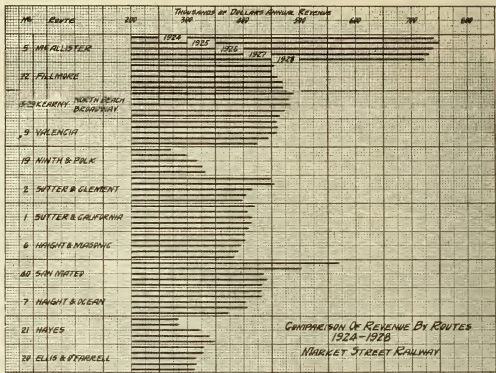 THOUSANDS OF DOLLARS ANNUAL REVENUE
No. ROUTE 200 300 400 500 600 700 800
1924
1925
5 McALLISTER 1926
1927
1928
22 FILLMORE
KEARNY NORTH BEACH
BROADWAY
9 VALENCIA
19 NINTH & POLK
2 SUTTER & CLEMENT
1 SUTTER & CALIFORNIA
6 HAIGHT & MASONIC
40 SAN MATEO
7 HAIGHT & OCEAN
21 HAYES
20 ELLIS & O'FARRELL
COMPARISON OF REVENUE BY ROUTES
1924-1928
MARKET STREET RAILWAY